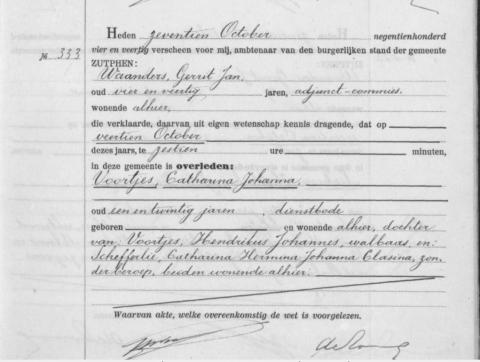 Heden zeventien October negentienhonderd
№ 333
vier en veertig verscheen voor mij, ambtenaar van den burgerlijken stand der gemeente
ZUTPHEN:
Waanders, Gerrit Jan,
oud vier en veertig jaren, adjunct-commies.
wonende alhier,
die verklaarde, daarvan uit eigen wetenschap kennis dragende, dat op
veertien October
dezes jaars, te zestien ure minuten,
in deze gemeente is overleden:
Voortjes, Catharina Johanna,
oud een en twintig jaren, dienstbode
geboren en wonende alhier, dochter
van Voortjes, Hendrikus Johannes, walbaas, en:
Catharina Hermina Johanna Clasina, zon-
der beroep, beiden wonende alhier.
Waarvan akte, welke overeenkomstig de wet is voorgelezen.